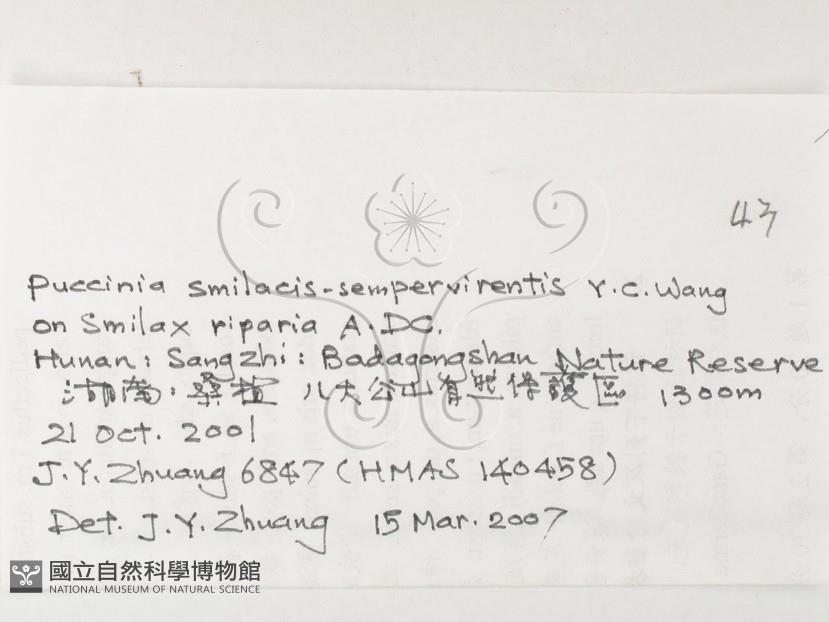 43
Puccinia smilacis-sempervirentis Y.C. Wang
on Smilax riparia A.DC.
Hunan: Sangzhi: Badagongshan Nature Reserve
湖南, 桑植 八大公山自然保護區 1300m
21 Oct. 2001
J.Y. Zhuang 6847 (HMAS 140458)
Det. J.Y. Zhuang 15 Mar. 2007
國立自然科學博物館
NATIONAL MUSEUM OF NATURAL SCIENCE